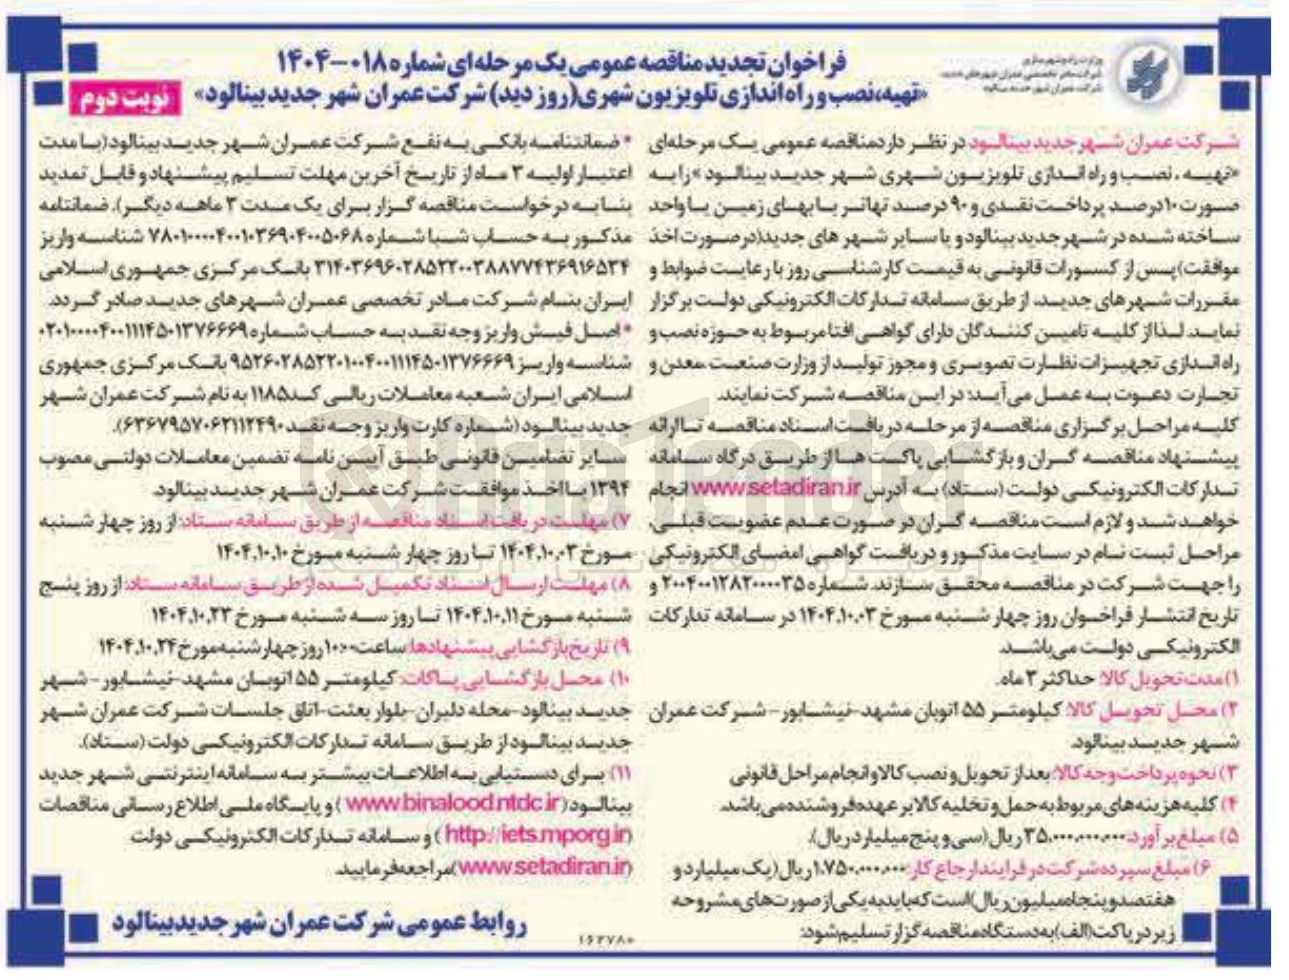 فراخوان تجدید مناقصه عمومی یک مرحله‌ای شماره ۰۱۸-۱۴۰۴
«تهیه، نصب و راه اندازی تلویزیون شهری (روز دید) شرکت عمران شهر جدید بینالود»
نوبت دوم
وزارت راه و شهرسازی
شرکت مادر تخصصی عمران شهرهای جدید
شرکت عمران شهر جدید بینالود
شرکت عمران شهر جدید بینالود در نظر دارد مناقصه عمومی یک مرحله‌ای
«تهیه، نصب و راه اندازی تلویزیون شهری شهر جدید بینالود» را به
صورت ۱۰درصد پرداخت نقدی و ۹۰درصد تهاتر با بهای زمین یا واحد
ساخته شده در شهر جدید بینالود و یا سایر شهر های جدید(در صورت اخذ
موافقت)پس از کسورات قانونی به قیمت کارشناسی روز با رعایت ضوابط و
مقررات شهرهای جدید، از طریق سامانه تدارکات الکترونیکی دولت برگزار
نماید. لذا از کلیه تامین کنندگان دارای گواهی افتا مربوط به حوزه نصب و
راه اندازی تجهیزات نظارت تصویری و مجوز تولید از وزارت صنعت، معدن و
تجارت دعوت به عمل می‌آید؛ در این مناقصه شرکت نمایند.
کلیه مراحل برگزاری مناقصه از مرحله دریافت اسناد مناقصه تا ارائه
پیشنهاد مناقصه گران و بازگشایی پاکت ها از طریق درگاه سامانه
تدارکات الکترونیکی دولت (ستاد) به آدرس www.setadiran.ir انجام
خواهد شد و لازم است مناقصه گران در صورت عدم عضویت قبلی،
مراحل ثبت نام در سایت مذکور و دریافت گواهی امضای الکترونیکی
را جهت شرکت در مناقصه محقق سازند. شماره ۲۰۰۴۰۰۱۲۸۲۰۰۰۰۳۵ و
تاریخ انتشار فراخوان روز چهار شنبه مورخ ۱۴۰۴.۱۰.۰۳ در سامانه تدارکات
الکترونیکی دولت می‌باشد.
۱) مدت تحویل کالا: حداکثر ۳ ماه.
۲) محل تحویل کالا: کیلومتر ۵۵ اتوبان مشهد-نیشابور- شرکت عمران
شهر جدید بینالود.
۳) نحوه پرداخت وجه کالا: بعد از تحویل و نصب کالا و انجام مراحل قانونی
۴) کلیه هزینه های مربوط به حمل و تخلیه کالا بر عهده فروشنده می باشد.
۵) مبلغ برآورد: ۳۵،۰۰۰،۰۰۰،۰۰۰ ریال (سی و پنج میلیارد ریال).
۶) مبلغ سپرده شرکت در فرایند ارجاع کار: ۱،۷۵۰،۰۰۰،۰۰۰ ریال (یک میلیارد و
هفتصد و پنجاه میلیون ریال) است که باید به یکی از صورت های مشروحه
زیر در پاکت (الف) به دستگاه مناقصه گزار تسلیم شود:
* ضمانتنامه بانکی به نفع شرکت عمران شهر جدید بینالود(با مدت
اعتبار اولیه ۳ ماه از تاریخ آخرین مهلت تسلیم پیشنهاد و قابل تمدید
بنا به درخواست مناقصه گزار برای یک مدت ۳ ماهه دیگر). ضمانتنامه
مذکور به حساب شبا شماره ۷۸۰۱۰۰۰۰۴۰۰۱۰۳۶۹۰۴۰۰۵۰۶۸ شناسه واریز
۳۱۴۰۳۶۹۶۰۲۸۵۲۲۰۰۳۸۸۷۷۴۳۶۹۱۶۵۳۴ بانک مرکزی جمهوری اسلامی
ایران بنام شرکت مادر تخصصی عمران شهرهای جدید صادر گردد.
* اصل فیش واریز وجه نقد به حساب شماره ۰۲۰۱۰۰۰۰۴۰۰۱۱۱۴۵۰۱۳۷۶۶۶۹
شناسه واریز ۹۵۲۶۰۲۸۵۲۲۰۱۰۰۴۰۰۱۱۱۴۵۰۱۳۷۶۶۶۹ بانک مرکزی جمهوری
اسلامی ایران شعبه معاملات ریالی کد ۱۱۸۵ به نام شرکت عمران شهر
جدید بینالود (شماره کارت واریز وجه نقد ۶۳۶۷۹۵۷۰۶۲۱۱۲۴۹۰).
سایر تضامین قانونی طبق آیین نامه تضمین معاملات دولتی مصوب
۱۳۹۴ با اخذ موافقت شرکت عمران شهر جدید بینالود.
۷) مهلت دریافت اسناد مناقصه از طریق سامانه ستاد: از روز چهار شنبه
مورخ ۱۴۰۴.۱۰.۰۳ تا روز چهار شنبه مورخ ۱۴۰۴.۱۰.۱۰
۸) مهلت ارسال اسناد تکمیل شده از طریق سامانه ستاد: از روز پنج
شنبه مورخ ۱۴۰۴.۱۰.۱۱ تا روز سه شنبه مورخ ۱۴۰۴.۱۰.۲۳
۹) تاریخ بازگشایی پیشنهادها: ساعت ۱۰:۰۰ روز چهارشنبه مورخ ۱۴۰۴.۱۰.۲۴
۱۰) محل بازگشایی پاکات: کیلومتر ۵۵ اتوبان مشهد-نیشابور-شهر
جدید بینالود-محله دلبران-بلوار بعثت-اتاق جلسات شرکت عمران شهر
جدید بینالود از طریق سامانه تدارکات الکترونیکی دولت (ستاد).
۱۱) برای دستیابی به اطلاعات بیشتر به سامانه اینترنتی شهر جدید
بینالود (www.binalood.ntdc.ir) و پایگاه ملی اطلاع رسانی مناقصات
(http://iets.mporg.ir) و سامانه تدارکات الکترونیکی دولت
(www.setadiran.ir) مراجعه فرمایید.
روابط عمومی شرکت عمران شهر جدید بینالود
۱۶۲۷۸۰